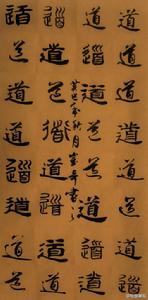 道道道道道道道道
道道道道道道道道
秋月書
道道道道道道道道
道道道道道道道道